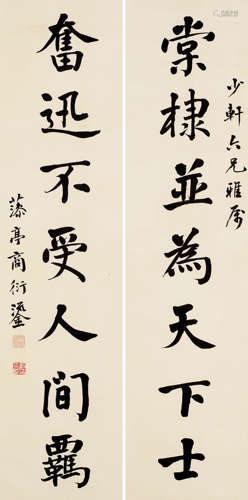 少軒六兄雅屬
棠棣並為天下士
奮迅不受人間羈
藻亭商衍瀛